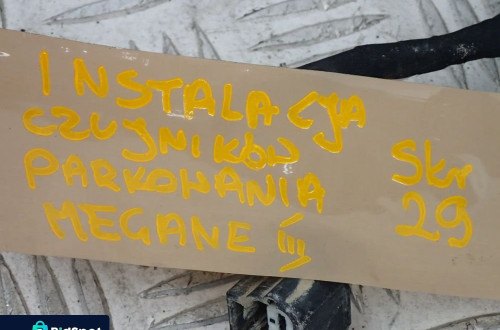 INSTALACJA
CZUJNIKÓW
PARKOWANIA
MEGANE III
Skr
29
BidSpot